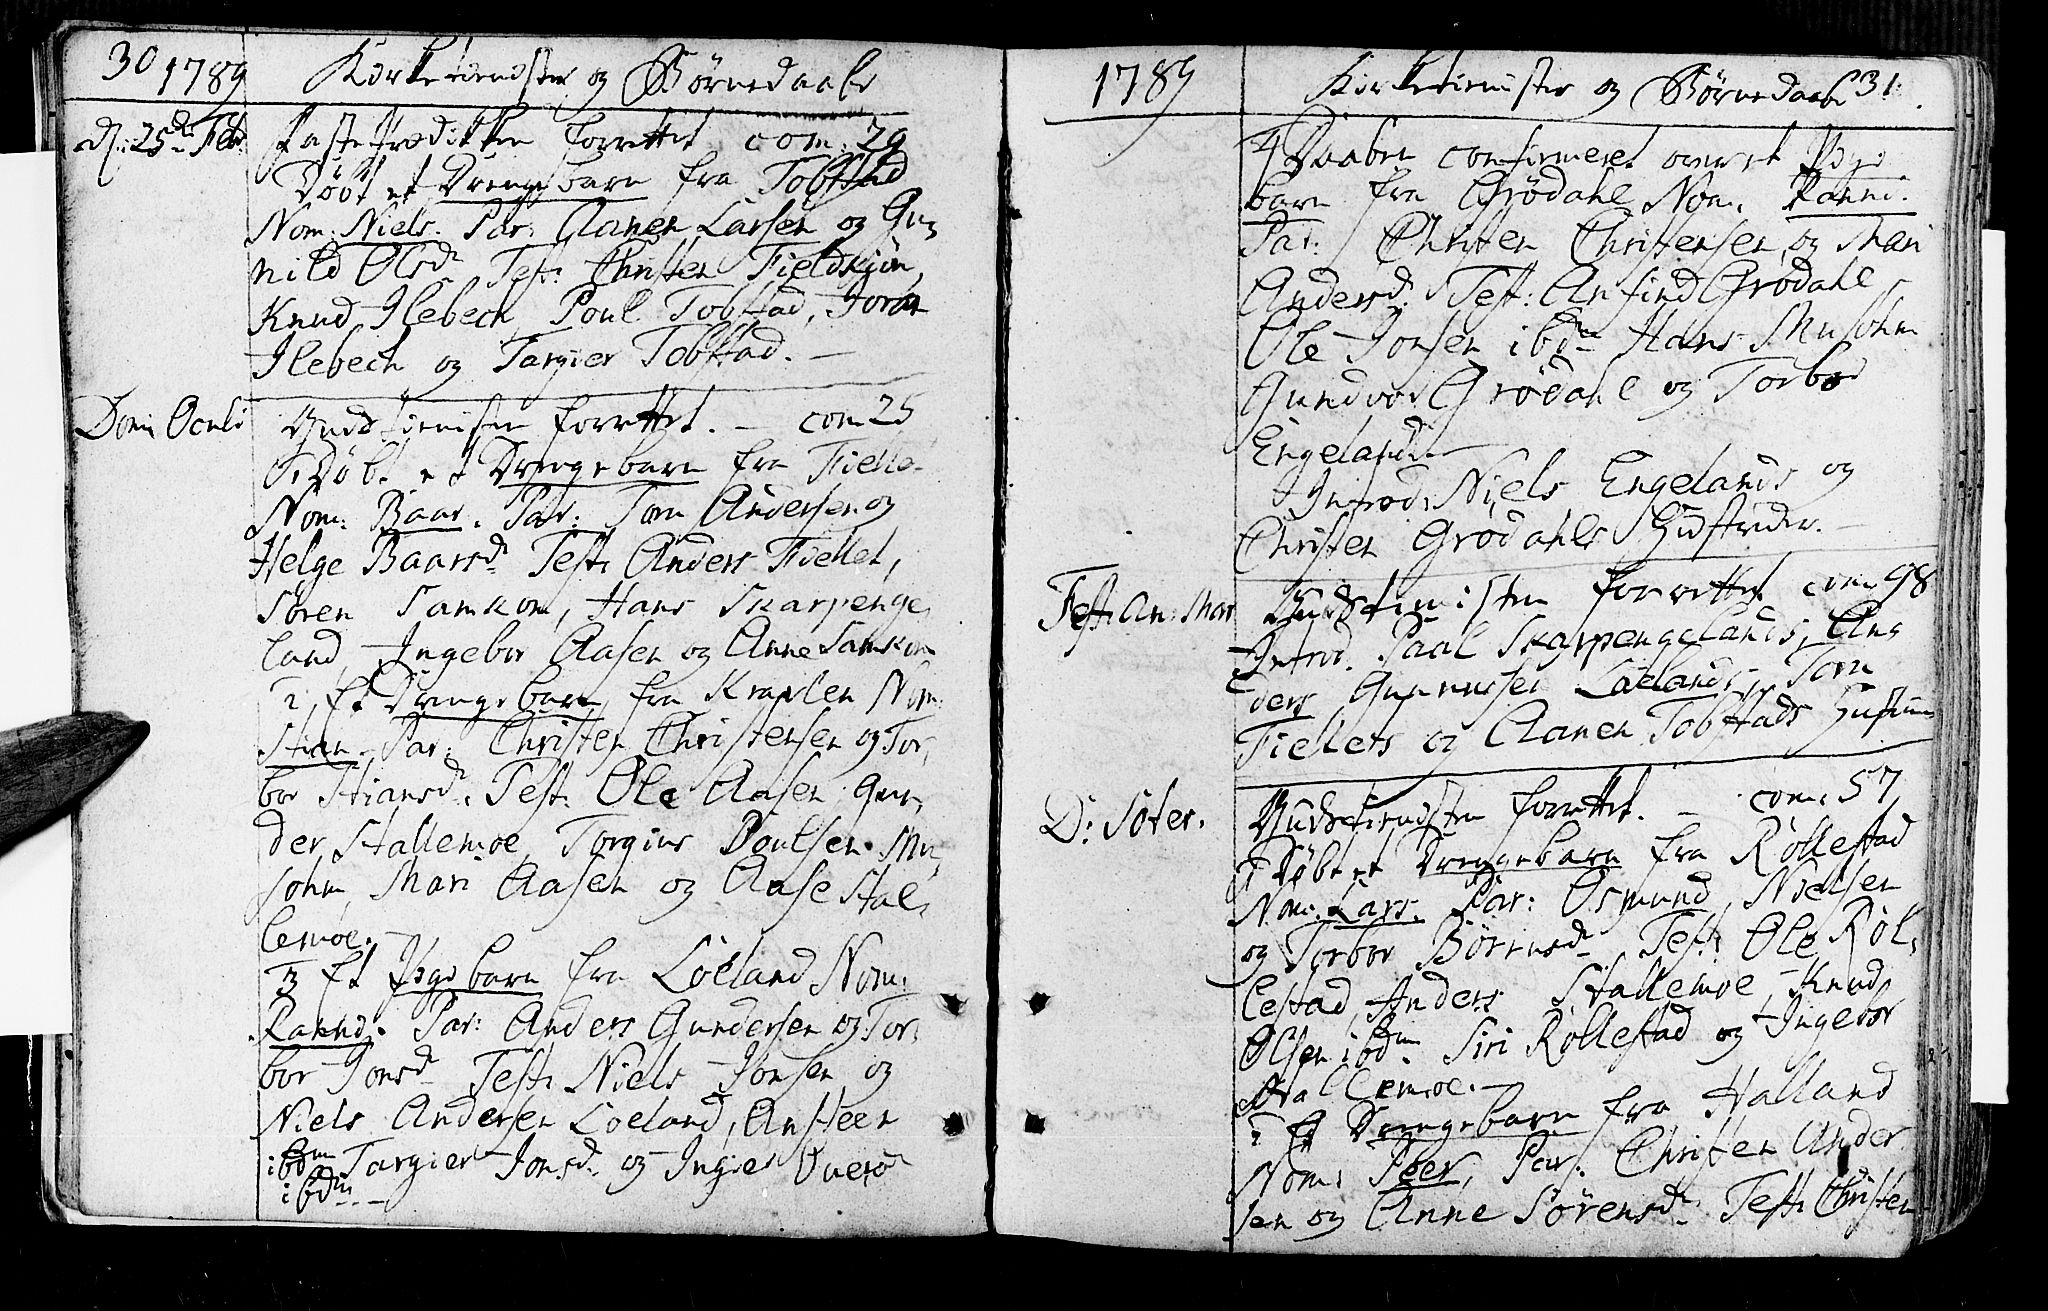 30 1789 Kirketienester og Börnedaabe
d. 25de Febr. Fastepræd​iken forrettet com: 29
Döbt et Drengebarn fra Tobstad
Nom: Niels. Par: Aanen Larsen og Gu=
nild Olsd. Test: Christen Fieldskiön,
Knud Ilebech, Poul Tobstad, Joran
Ilebech og Targier Tobstad. —
Domin Oculi Gudstienisten forrettet. — com 25
1, Döbt et Drengebarn fra Fielle
Nom: Baar. Par: Tom Andersen og
Helge Baarsd. Test: Anders Fiellet,
Sören Samkom, Hans Skarpenge
land, Ingebor Aasen og Anne Samkom
2, Et Drengebarn fra Kravlen Nom:
Stian. Par: Christen Christensen og Tor,
bor Stiansd. Test: Ole Aasen, Gun,
der Stallemoe, Torgius Poulsen Mu,
sohm, Mari Aasen og Aase Stal,
lemoe.
3 Et Pigebarn fra Löeland Nom:
Rannd. Par: Anders Gundersen og Tor,
bor Jonsd. Test: Niels Jonsen og
Niels Andersen Löeland, Ansteen
ibdm Targier Jonsd. og Ingier
ibdm —
1789 Kirketienister og Börnedaabe 31.
4 Daaben confirmeret over et Pige
barn fra Grödahl Nom: Ranni.
Par: Christen Christensen og Mari
Andersd. Test: Anfind Grödahl
Ole Jonsen ibdm Hans Musohm
Gundvor Grödahl og Torbor
Engeland. —
Introd: Niels Engelands og
Christen Grödahls Hustruer. —
Fest: An: Mar Gudstienisten forrettet com 98
Introd. Paal Skarpengelands, An,
ders Gunnersen Löelands, Tom
Fiellets og Aanen Tobstads Hustruer
D: Soter. Gudstienesten forrettet. — com: 57
1 Döbt et Drengebarn fra Röllestad
Nom: Lars. Par: Osmund Nielsen
og Torbor Börensd. Test: Ole Röl,
lestad, Anders Stallemoe, Knud
Olsen ibdm Siri Röllestad og Ingebor
Stallemoe. —
2 Et Drengebarn fra Halland
Nom: Peer, Par: Christen Ander
sen og Anne Sörensd. Test: Christen